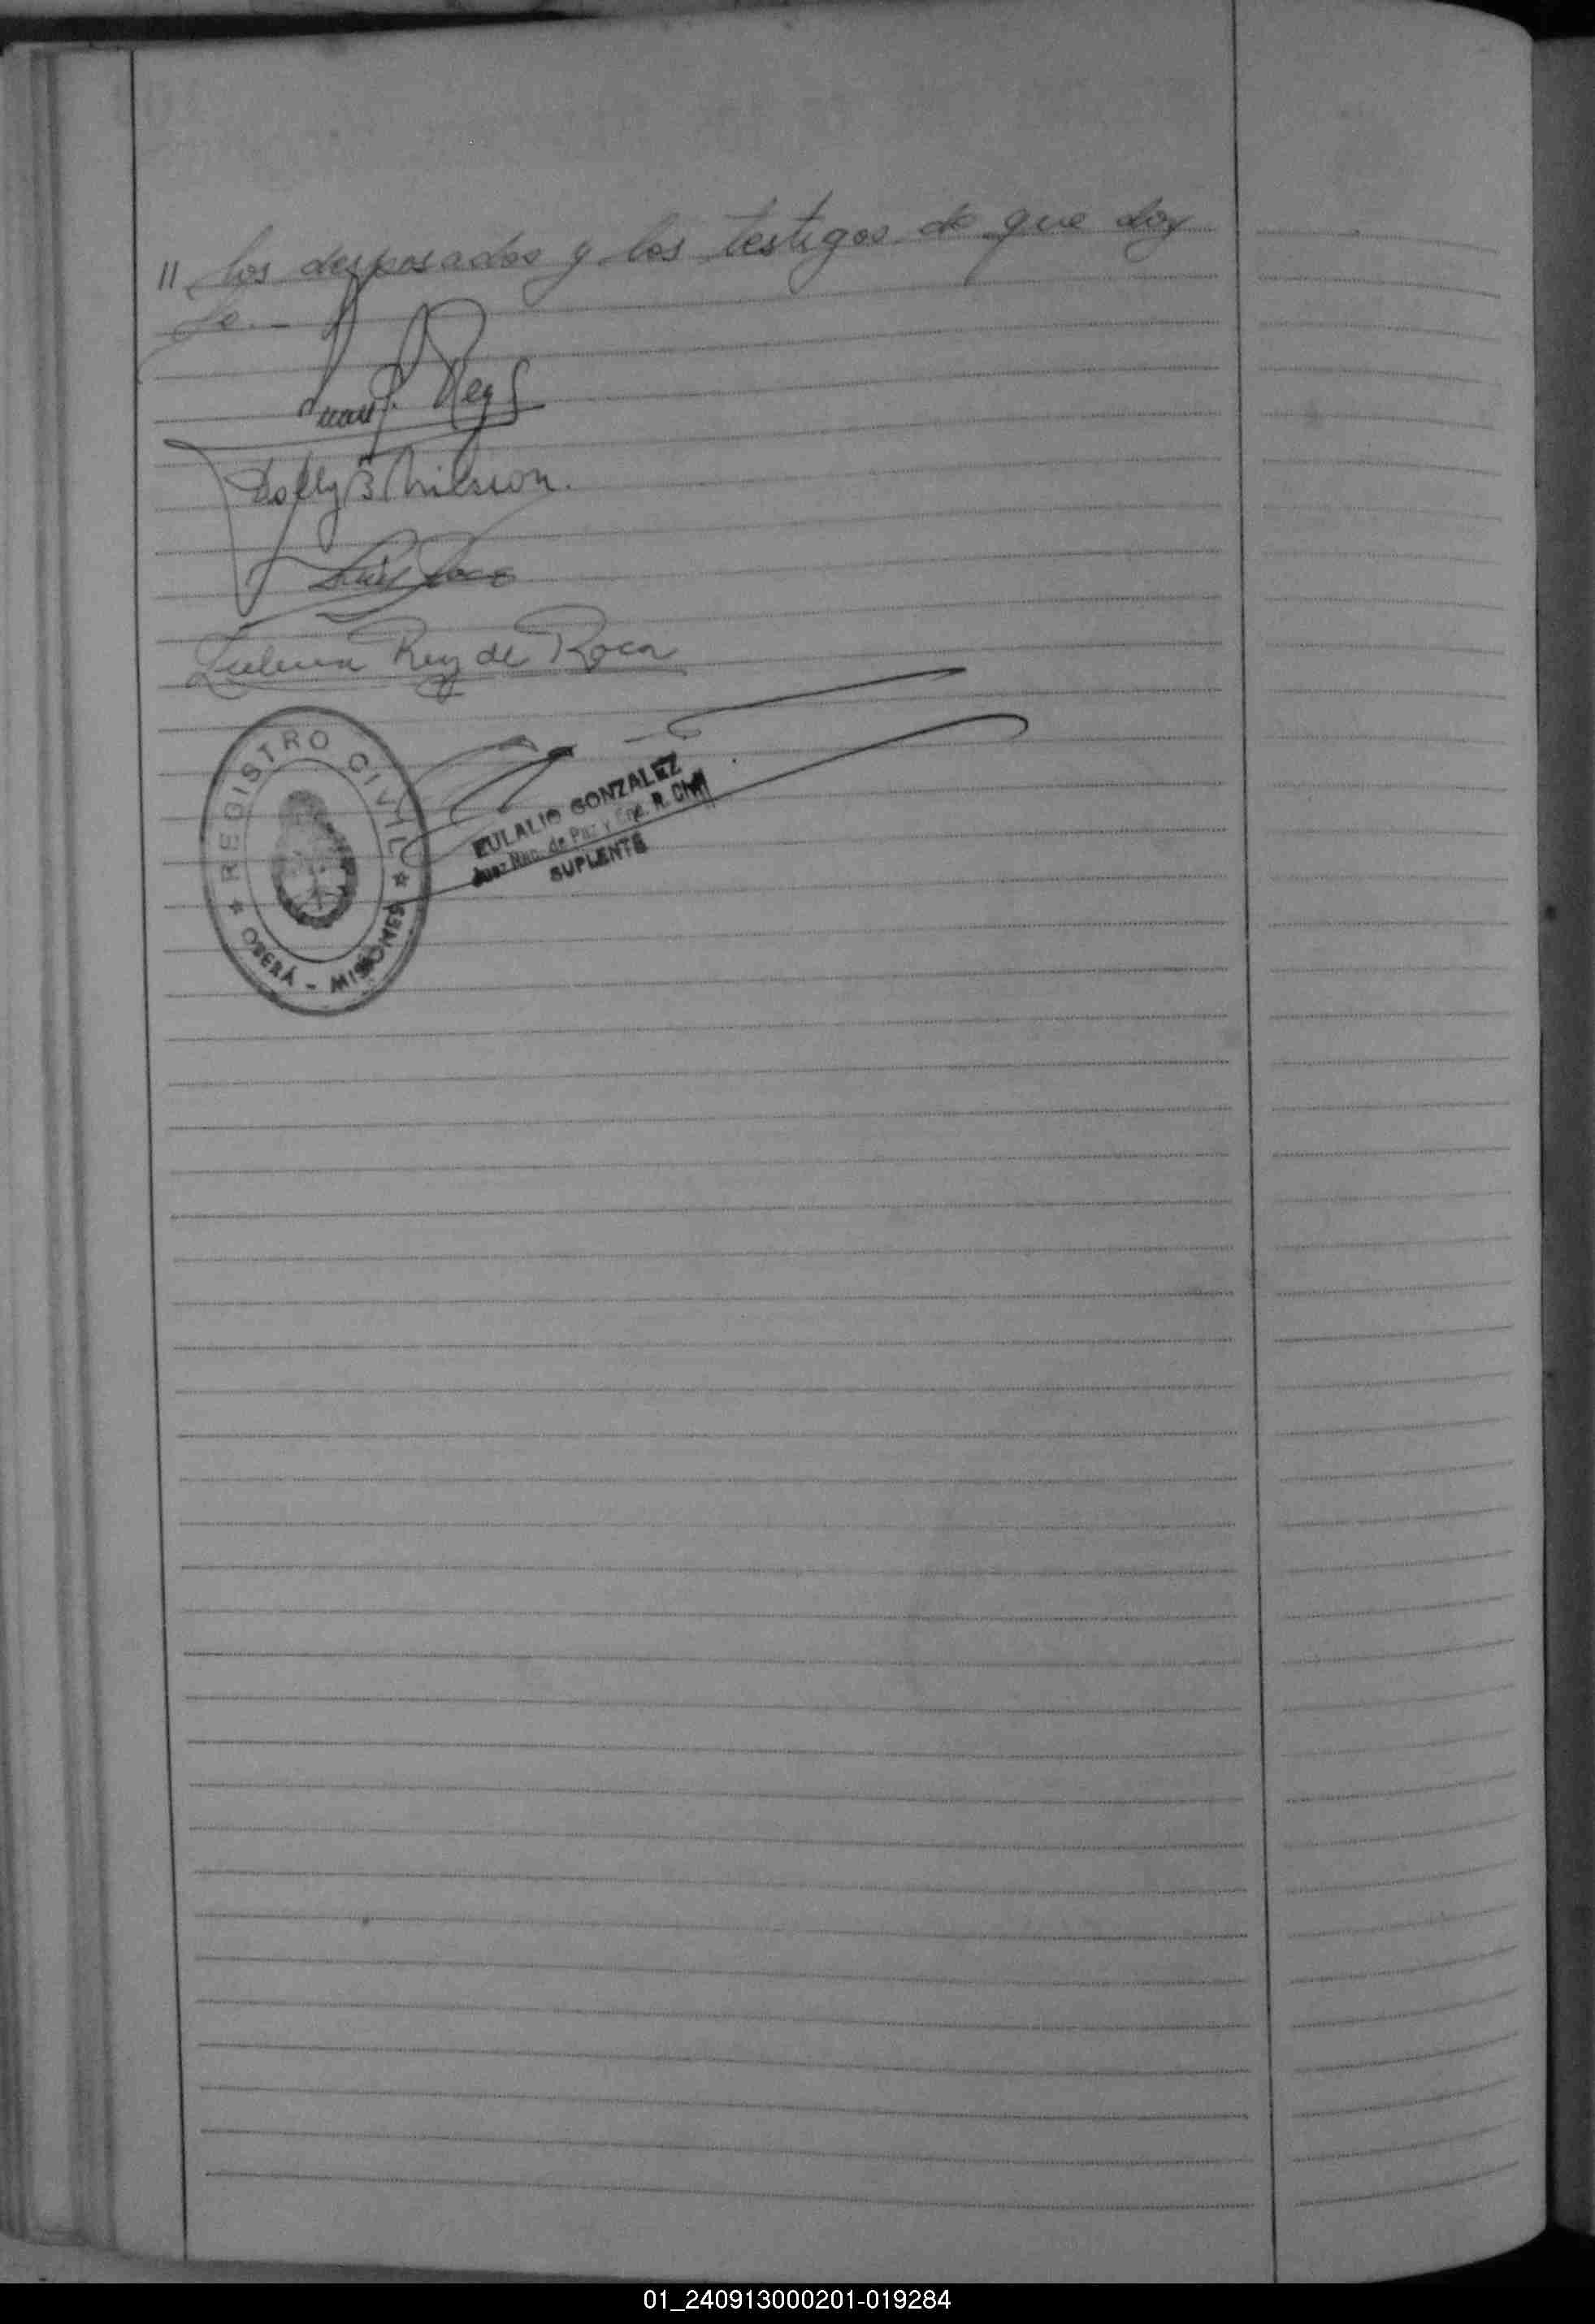 11 los desposados y los testigos de que doy
fe.-
Juan J. Rey
Dolly B Nilsson.
Luis Roca
Rey de Roca
REGISTRO CIVIL
OBERÁ - MISIONES
EULALIO GONZALEZ
Juez Nac. de Paz y Enc. R. Civil
SUPLENTE
01_240913000201-019284